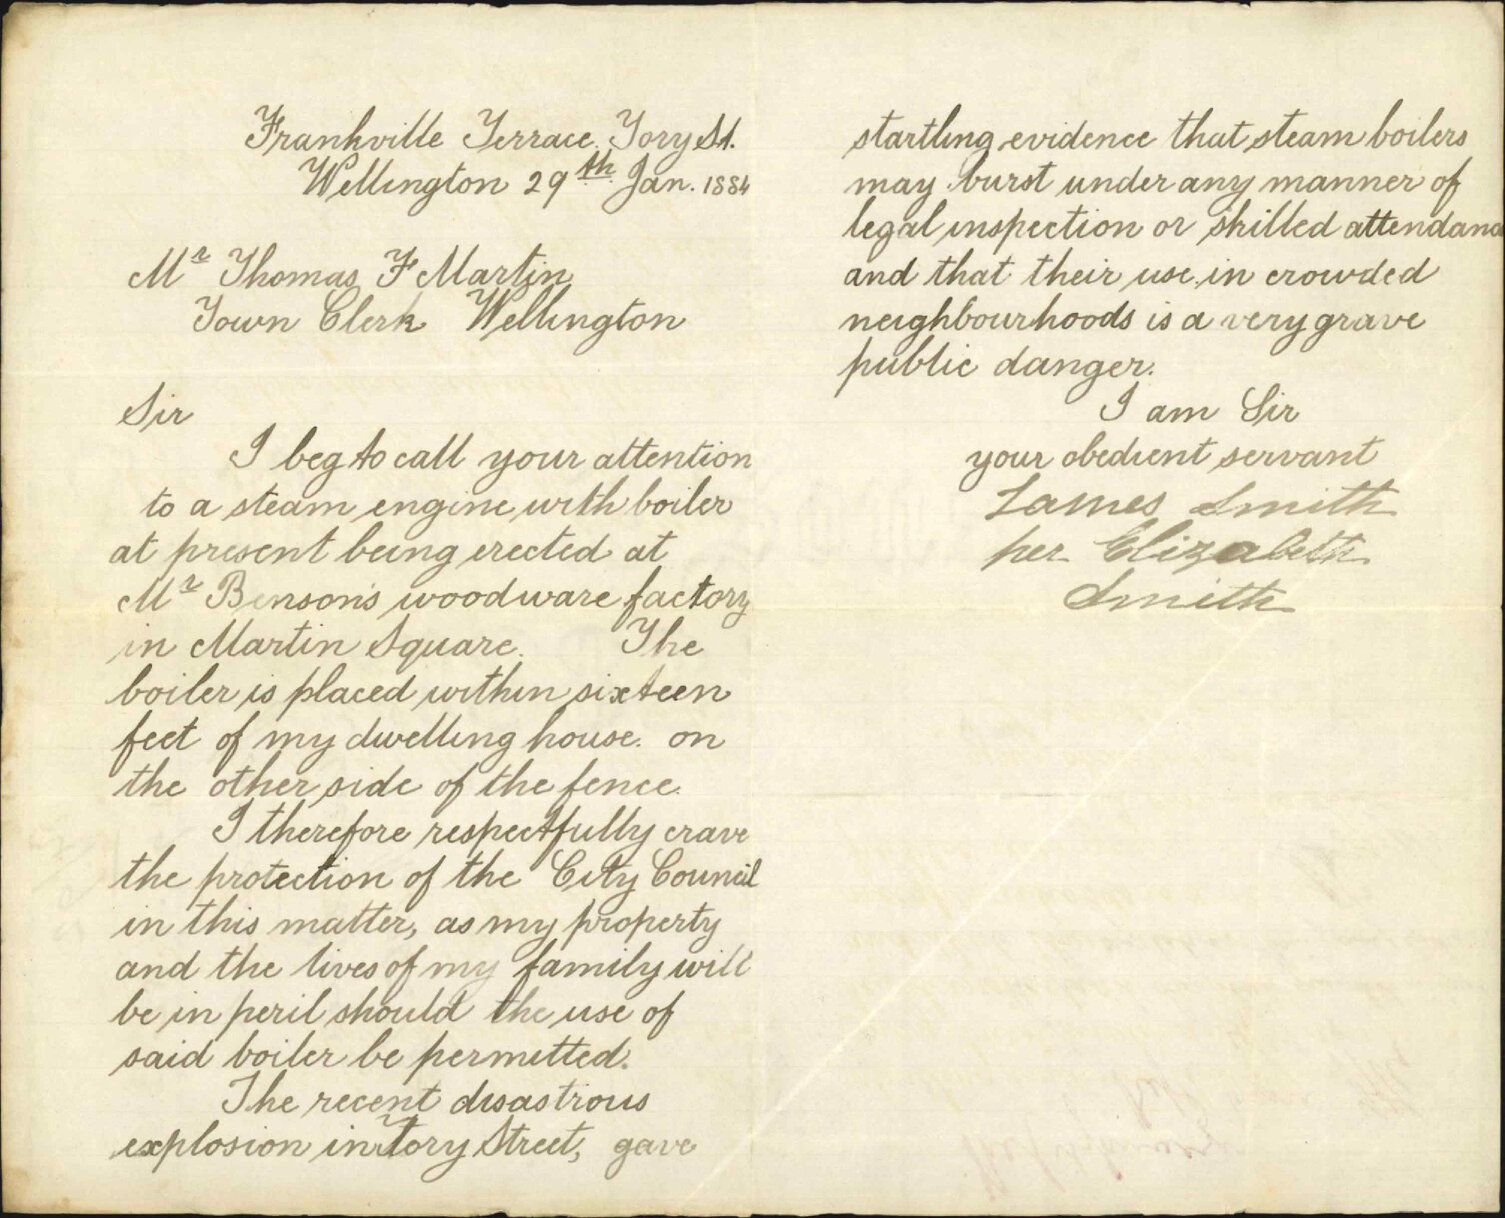 Frankville Terrace. Tory St.
Wellington 29th Jan. 1884
Mr Thomas F Martin
Town Clerk Wellington
Sir
I beg to call your attention
to a steam engine with boiler
at present being erected at
Mr Benson's woodware factory
in Martin Square. The
boiler is placed within sixteen
feet of my dwelling house. on
the other side of the fence.
I therefore respectfully crave
the protection of the City Council
in this matter, as my property
and the lives of my family will
be in peril should the use of
said boiler be permitted.
The recent disastrous
explosion in Tory Street, gave
startling evidence that steam boilers
may burst under any manner of
legal inspection or skilled attendanc
and that their use in crowded
neighbourhoods is a very grave
public danger.
I am Sir
your obedient servant
James Smith
per Elizabeth
Smith